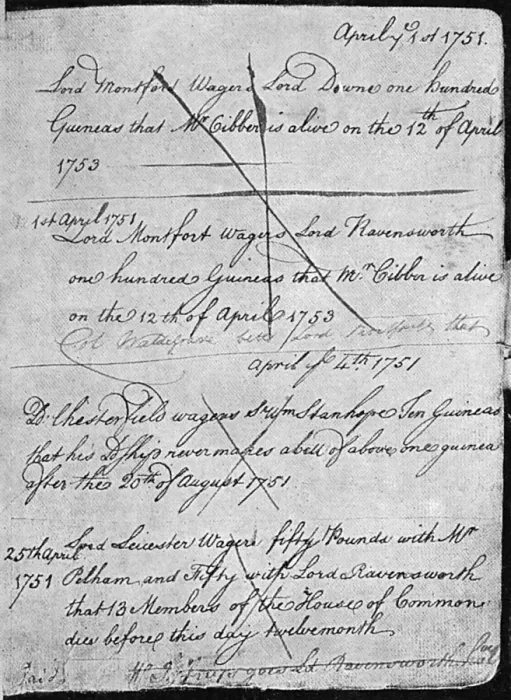 April ye 1st 1751.
Lord Montfort Wagers Lord Downe one hundred
Guineas that Mr Cibber is alive on the 12th of April
1753
1st April 1751
Lord Montfort wagers Lord Ravensworth
one hundred Guineas that Mr Cibber is alive
on the 12th of April 1753
Col Waldegrave bets Lord that
april ye 4th 1751
Ld. Chesterfield wagers Sr Wm Stanhope Ten Guineas
that his Ldship never makes a bett of above one guinea
after the 20th of August 1751
25th April
1751
Lord Leicester Wagers fifty Pounds with Mr
Pelham and Fifty with Lord Ravensworth
that 13 Members of the House of Commons
dies before this day twelvemonth
paid
goes Ld Ravensworth